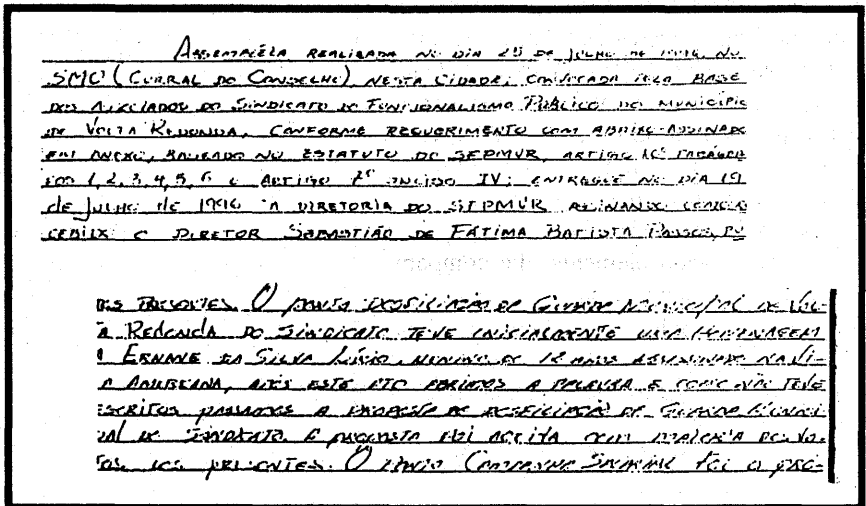 Assembléia realizada no dia 25 de julho de 1996, no
SMC (Curral do Conselho), nesta cidade, convocada pela base
dos auxiliados do Sindicato do Funcionalismo Público do Município
de Volta Redonda, conforme requerimento com abaixo-assinado
em anexo, baseado no estatuto do SFPMVR, artigo 16º parágra-
fos 1, 2, 3, 4, 5, 6 e artigo 7º inciso IV; entregue no dia 19
de julho de 1996 a diretoria do SFPMVR assinando
o Diretor Sebastião de Fátima Batista
des presentes. O ponto desfiliação da Guarda Municipal de Vol-
a Redonda do sindicato teve inicialmente uma homenagem
Ernane da Silva Lúcio, menino de 12 anos assassinado na Vi-
a Americana, após este ato abrimos a palavra e como não teve
escritos passamos a proposta de desfiliação da Guarda Munici-
pal do Sindicato. E proposta foi aceita com maioria dos vo-
tos dos presentes. O ponto Campanha Salarial foi o pro-